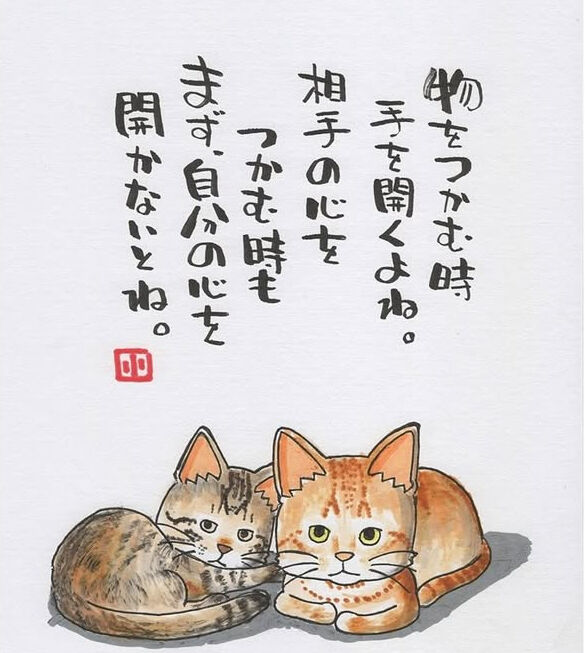 物をつかむ時
手を開くよね。
相手の心を
つかむ時も
まず、自分の心を
開かないとね。